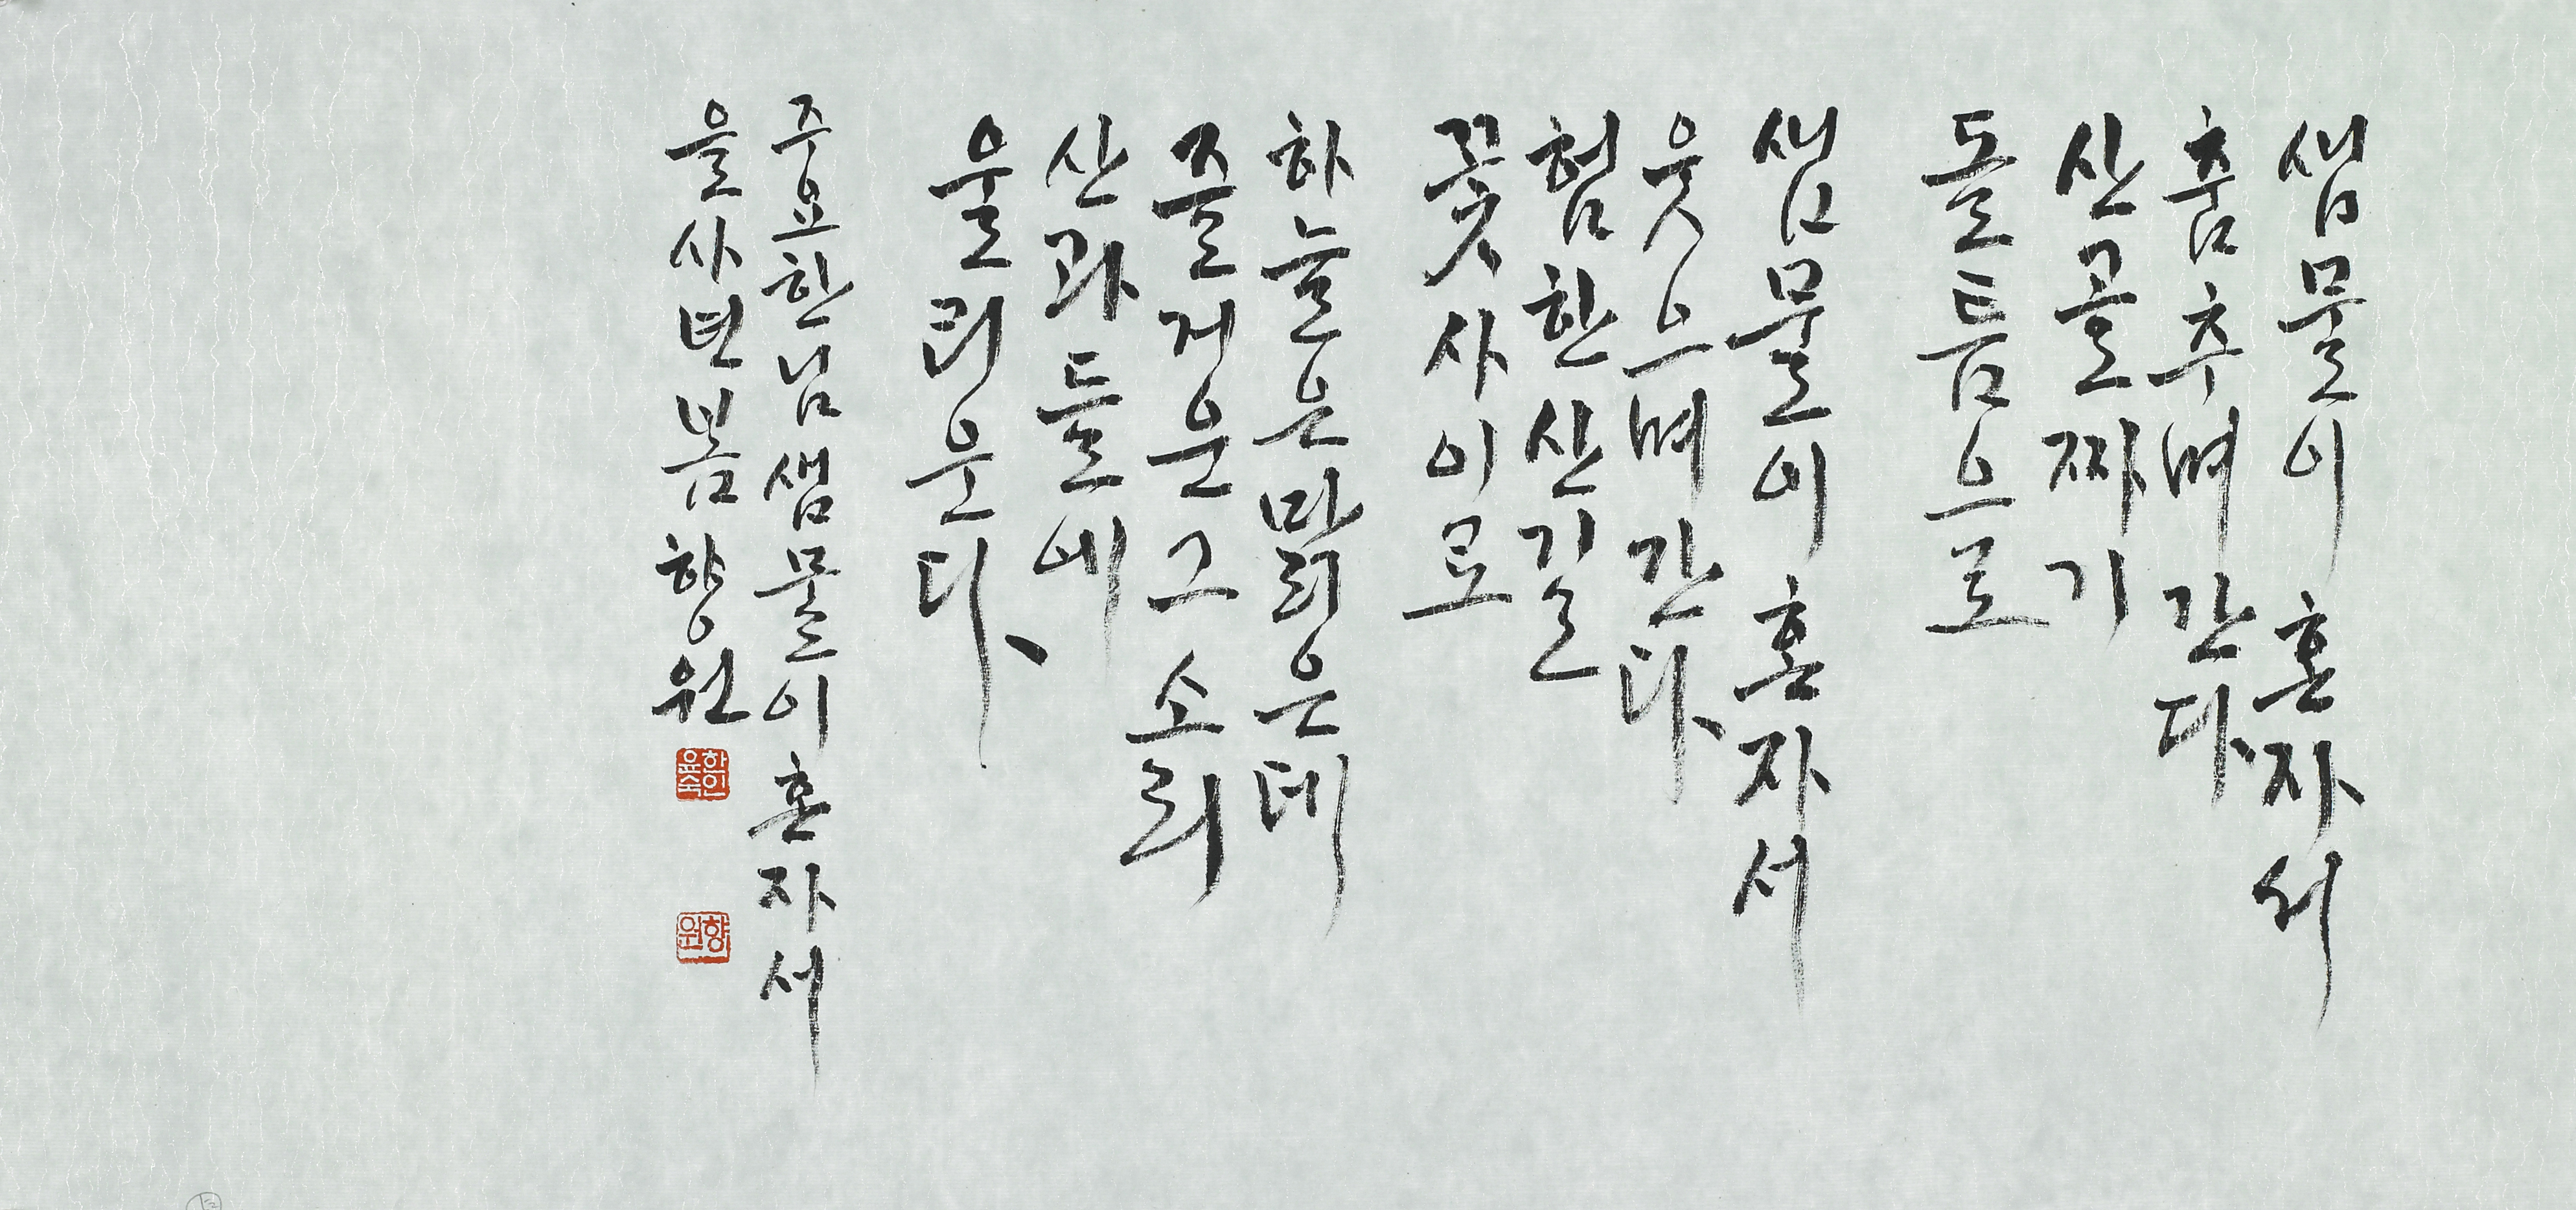 샘물이 혼자서
춤추며 간다
산골짜기
돌틈으로
샘물이 혼자서
웃으며 간다
험한 산길
꽃사이로
하늘은 맑은데
즐거운 그 소리
산과 들에
울리운다
주요한님 샘물이 혼자서
을사년 봄 향원
한인윤숙
향원